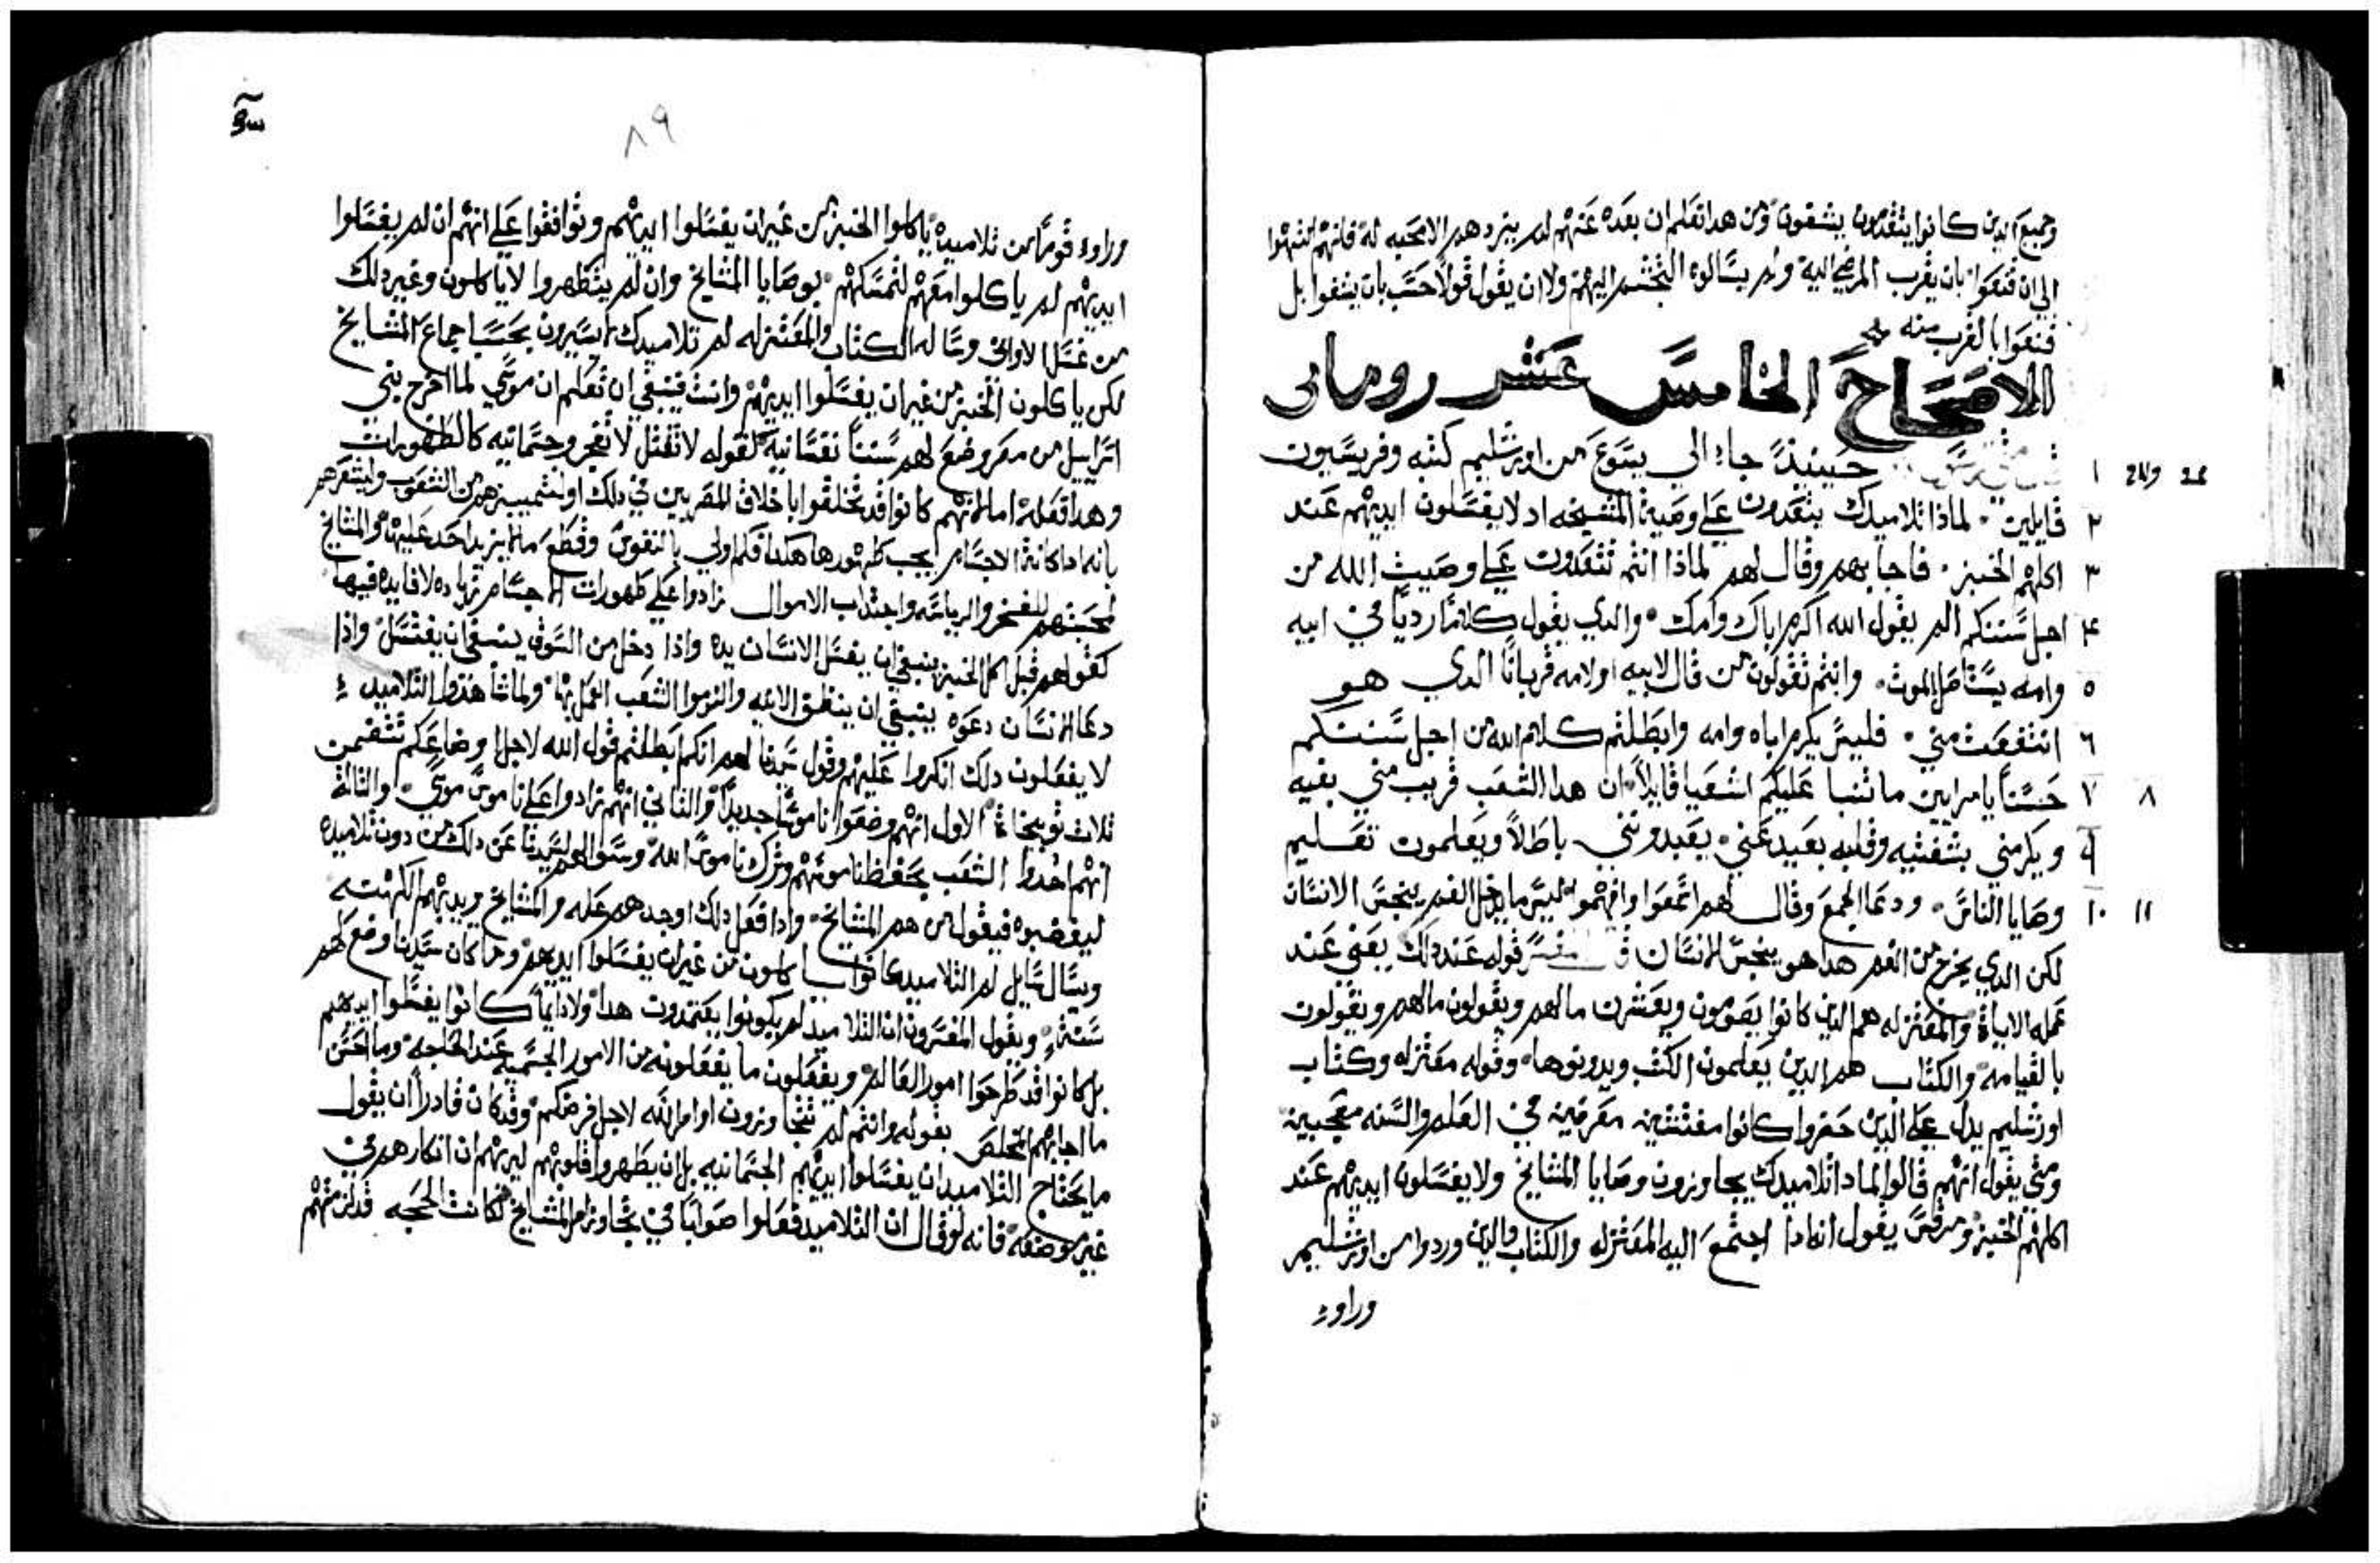 وجميع الدين كانوا يتقدمون يشفون ومن هدا تعلم ان بعده عنهم لم يزدهم الا محبه له فانهم انتهوا
الي ان قنعوا بان يقرب المرضي اليه ولم يسالوه التجشم اليهم ولا ان يقول قولا حسب بان يشفوا بل
قنعوا بالقرب منه
الاصحاح الخامس عشر روماني
١ حينيذ جاء الي يسوع من اورشليم كتبه وفريسيون
٢ قايلين لماذا تلاميدك يتعدون علي وصية المشيخه اد لا يغسلون ايديهم عند
٣ اكلهم الخبز فاجابهم وقال لهم لماذا انتم تتعدون علي وصيت الله من
٤ اجل سنتكم الم يقول الله اكرم اباك وامك والدي يقول كلاما رديا في ابيه
٥ وامه يستاصل بالموت وانتم تقولون من قال لابيه او لامه قربانا الدي هو
٦ انتفعت مني فليس يكرم اباه وامه وابطلتم كلام الله من اجل سنتكم
٧ ٨ حسنا يا مرايين ما تنبا عليكم اشعيا قايلا ان هدا الشعب قريب مني بفيه
٩ ويكرمني بشفتيه وقلبه بعيد عني يعبدونني باطلا ويعلمون تعليم
١٠ ١١ وصايا الناس ودعا الجمع وقال لهم اسمعوا وافهموا ليس ما يدخل الفم ينجس الانسان
لكن الدي يخرج من الفم هدا هو ينجس الانسان قوله عند دلك يعني عند
عمله الايات والمعتزله هم الدين كانوا يصومون ويعشرون مالهم ويقولون مالهم ويقولون
بالقيامه والكتاب هم الدين يعلمون الكتب ويدونوها وقوله معتزله وكتاب
اورشليم يدل علي الدين حضروا كانوا مفتشين معرقين في العلم والسنه معجبين
ومتي يقول انهم قالوا لمادا تلاميدك يجاوزون وصايا المشايخ ولا يغسلون ايديهم عند
اكلهم الخبز ومرقس يقول انه ادا اجتمع اليه المعتزله والكتاب والدين وردوا من اورشليم
وراوء
٨٩
وراوء قوما من تلاميده ياكلوا الخبز من غير ان يغسلوا ايديهم وتوافقوا علي انهم ان لم يغسلوا
ايديهم لم ياكلوا معهم لتمسكهم بوصايا المشايخ وان لم يتطهروا لا ياكلون وغير دلك
من غسل الاواني وسا له الكتاب والمعتزله لم تلاميدك يسيرون بحسب اجماع المشايخ
لكن ياكلون الخبز من غير ان يغسلوا ايديهم وانت فينبغي ان تعلم ان موسي لما اخرج بني
اسراييل من مصر وضع لهم سننا نفسانيه كقوله لا تقتل لا تفجر وجسمانيه كالطهورات
وهدا فعله كانوا قد تخلقوا باخلاق المصريين في دلك
بانه ادا كانت الاجسام يجب طهورها هكدا فكم اولي بالنفوس وقطع احد عليها والمشايخ
لمحبتهم للفخر والرياسه واجتداب الاموال زادوا علي طهورات الاجسام زياده لا فايده فيها
كقولهم قبل اكل الخبز ينبغي ان يغسل الانسان يده واذا دخل من السوق ينبغي ان يغتسل واذا
دعا الانسان دعوه ينبغي ان ينظف الانيه والزموا الشعب العمل بها التلاميد
لا يفعلون دلك انكروا عليهم وقول سيدنا لهم انكم ابطلتم قول الله لاجل اوضاعكم تتضمن
ثلاث توبيخات الاول انهم وضعوا ناموسا جديدا والثاني انهم زادوا علي ناموس موسي والثالث
انهم اخدوا الشعب بحفظ ناموسهم وترك ناموس الله عن دلك من دون تلاميده
ليغضبوه فيقول من هم المشايخ وادا فعل دلك اوجدهم عله والمشايخ يريد بهم الكهنه
ويسال سايل لم التلاميد كانوا ياكلون من غير ان يغسلوا ايديهم وما كان سيدنا وضع لهم
سنه ويقول المفسرون ان التلاميد لم يكونوا يعتمدون هدا ولا دايما كانوا يغسلوا ايديهم
بل كانوا قد طرحوا امور العالم ويفعلون ما يفعلونه من الامور الجسميه عند الحاجه وما احسن
ما اجابهم المخلص بقوله وانتم لم تتجاوزون اوامر الله لاجل فرضكم وقد كان قادرا ان يقول
ما يحتاج التلاميد ان يغسلوا ايديهم الجسمانيه بل ان يطهروا قلوبهم ليريهم ان انكارهم في
غير موضعه فانه لو قال ان التلاميد فعلوا صوابا في تجاوز امر المشايخ لكانت الحجه قد لزمتهم